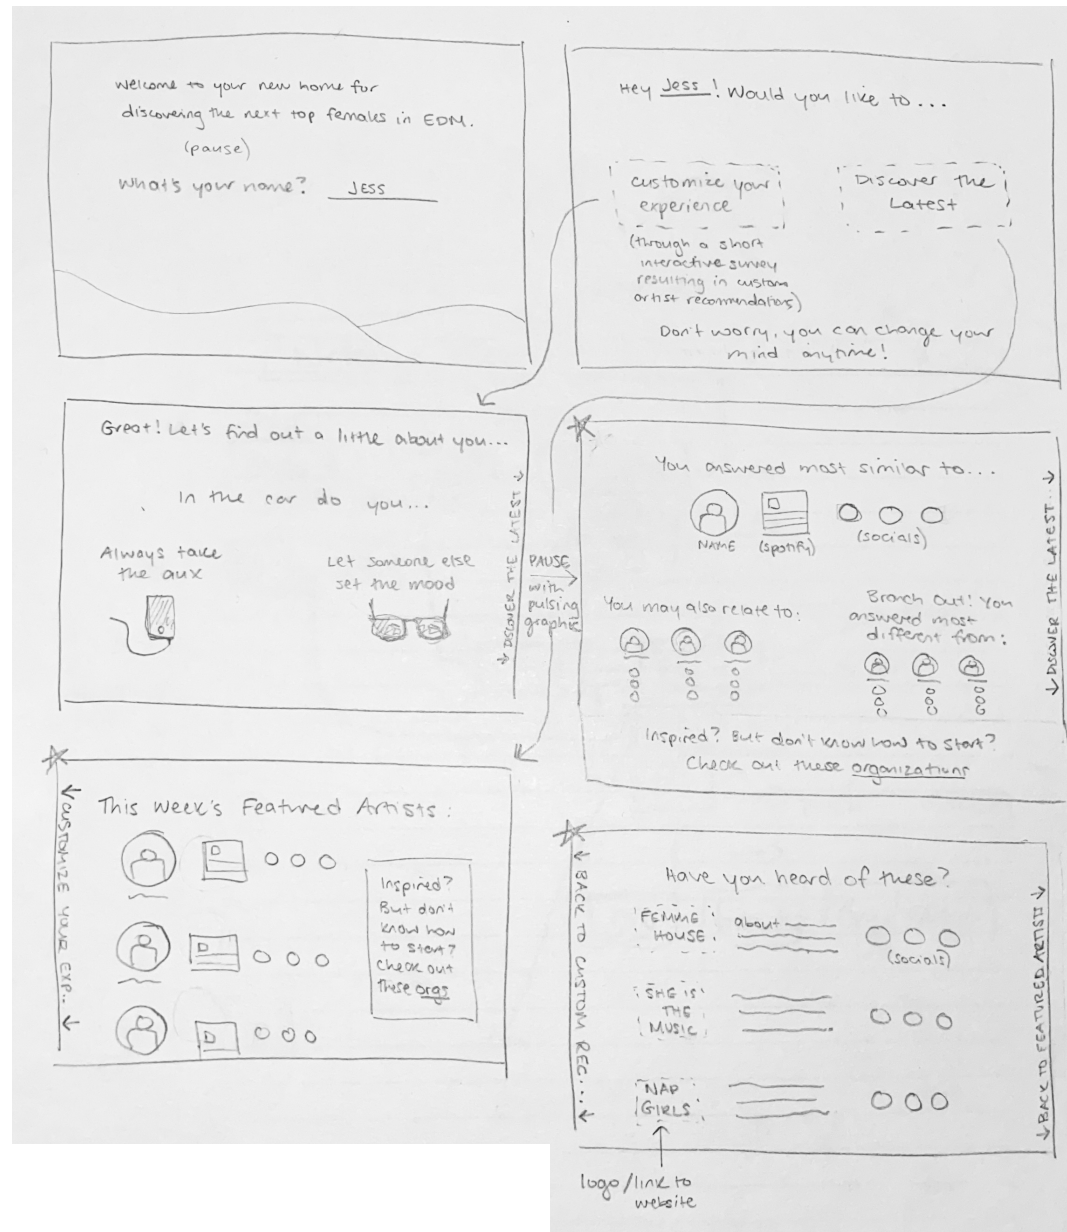 Welcome to your new home for
discovering the next top females in EDM.
(pause)
What's your name? JESS
Hey Jess! Would you like to...
customize your
experience
(through a short
interactive survey
resulting in custom
artist recommendations)
Discover the
Latest
Don't worry, you can change your
mind anytime!
Great! Let's find out a little about you...
In the car do you...
Always take
the aux
Let someone else
set the mood
DISCOVER THE LATEST
PAUSE
with
pulsing
graphic
You answered most similar to...
NAME
(spotify)
(socials)
You may also relate to:
Branch out! You
answered most
different from:
Inspired? But don't know how to start?
Check out these organizations
DISCOVER THE LATEST...
CUSTOMIZE YOUR EXP...
This Week's Featured Artists:
Inspired?
But don't
know how
to start?
Check out
these orgs
BACK TO CUSTOM REC...
Have you heard of these?
FEMME
HOUSE
about
(socials)
SHE IS
THE
MUSIC
NAP
GIRLS
BACK TO FEATURED ARTISTS
logo/link to
website